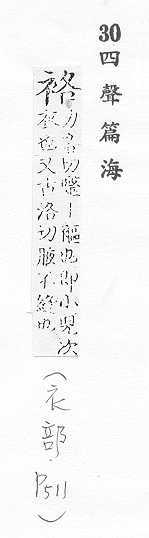 30四聲篇海
袼
力各切繄丨䙔也即小兒次
衣也又古洛切腋下縫也
(衣部 P511)